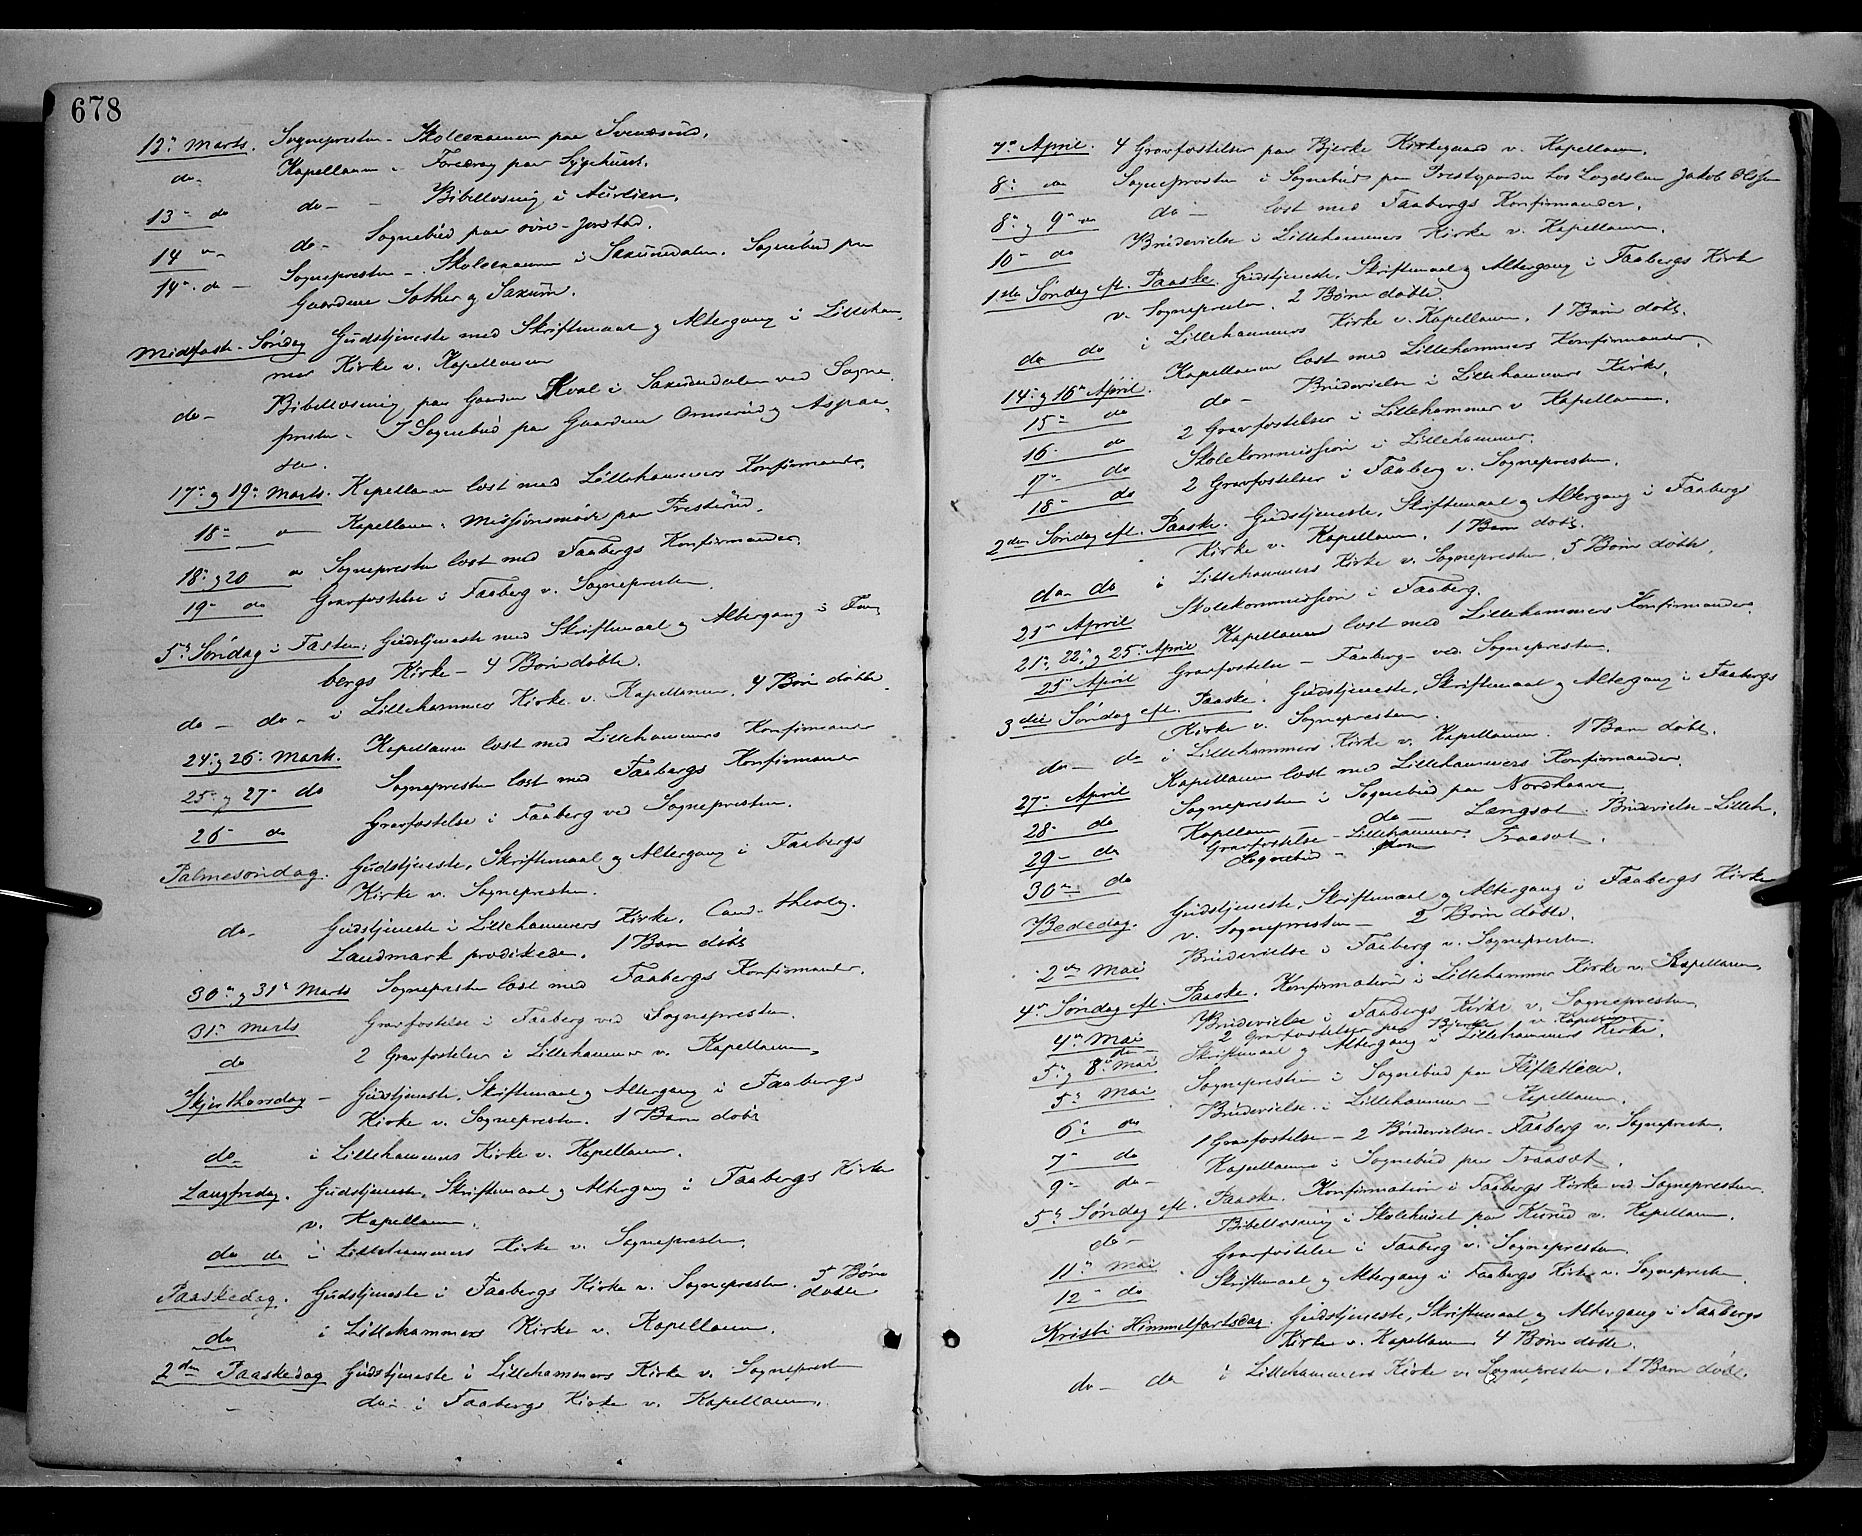 678
12te Marts. Sognepresten - Skoleexamen paa Svenserud.
do- Kapellanen - Foredrag paa Sygehuset.
13de do do- - Bibellæsning i Aurlien.
14 " do- Sognebud paa øvre-Jorstad.
14de do - Sognepresten - Skoleexamen i Saxumdalen. Sognebud paa
Gaardene Sother og Saxum.
Midfaste-Søndag Gudstjeneste med Skriftemaal og Altergang i Lilleham
mer Kirke v. Kapellanen
do- Bibellæsning paa Gaarden Hval i Saxumdalen ved Sogne
presten - I Sognebud paa Gaardene Ornserud og
17de og 19de Marts. Kapellanen læst med Lillehammers Konfirmander.
18de " Kapellanen i Missionsmøde paa Presterud.
18de og 20 " Sognepresten læst med Faabergs Konfirmander.
19de do Gravfæstelse i Faaberg v. Sognepresten.
5te Søndag i Fasten. Gudstjeneste med Skriftemaal og Altergang i Faa
bergs Kirke - 4 Børn døbte.
do - do - i Lillehammers Kirke v. Kapellanen. 4 Børn døbte.
24de og 26de Marts. Kapellanen læst med Lillehammers Konfirmander
25de og 27de do Sognepresten læst med Faabergs Konfirmander
26de do Gravfæstelse i Faaberg ved Sognepresten.
Palmesøndag. Gudstjeneste, Skriftemaal og Altergang i Faabergs
Kirke v. Sognepresten.
do- Gudstjeneste i Lillehammers Kirke. Cand. theolog.
Landmark prædikede. 1 Barn døbt
30te og 31te Marts Sognepresten læst med Faabergs Konfirmander.
31te Marts Gravfæstelse i Faaberg ved Sognepresten.
do 2 Gravfæstelser i Lillehammer v. Kapellanen.
Skjærthorsdag - Gudstjeneste, Skriftemaal og Altergang i Faabergs
Kirke v. Sognepresten. 1 Barn døbt
do i Lillehammers Kirke v. Kapellanen.
Langfredag. Gudstjeneste, Skriftemaal og Altergang i Faabergs Kirke
v. Kapellanen.
do do i Lillehammers Kirke v. Sognepresten.
Paaskedag. Gudstjeneste i Faabergs Kirke v. Sognepresten. 5 Børn
døbte
do i Lillehammers Kirke v. Kapellanen.
2den Paaskedag Gudstjeneste i Lillehammers Kirke v. Sognepresten
- do- i Faabergs Kirke v. Kapellanen.
7de April. 4 Gravfæstelser paa Bjerke Kirkegaard v. Kapellanen.
8de do Sognepresten i Sognebud paa Prestgaarden hos Lægdslem Jakob Olsen
8de og 9de do do - læst med Faabergs Konfirmander.
10de do Brudevielse i Lillehammers Kirke v. Kapellanen.
1ste Søndag eft. Paaske. Gudstjeneste, Skriftemaal og Altergang i Faabergs Kirke
v. Sognepresten. 2 Børn døbte.
do do i Lillehammers Kirke v. Kapellanen. 1 Barn døbt.
14de og 16de April. Kapellanen læst med Lillehammers Konfirmander.
15de do do - Brudevielse i Lillehammers Kirke.
16de do 2 Gravfæstelser i Lillehammer v. Kapellanen.
17de do Skolekommission i Lillehammer.
18de do 2 Gravfæstelser i Faaberg v. Sognepresten.
2den Søndag eft. Paaske. Gudstjeneste, Skriftemaal og Altergang i Faabergs
Kirke v. Kapellanen. 1 Barn døbt.
do- do i Lillehammers Kirke v. Sognepresten. 5 Børn døbte.
21de April Skolekommission i Faaberg.
21de, 22de og 25de April Kapellanen læst med Lillehammers Konfirmander.
25de April Gravfæstelse - Faaberg - ved Sognepresten.
3die Søndag eft. Paaske. Gudstjeneste, Skriftemaal og Altergang i Faabergs
Kirke v. Sognepresten.
do- do i Lillehammers Kirke v. Kapellanen. 1 Barn døbt.
27de April Kapellanen læst med Lillehammers Konfirmander.
28de do Sognepresten i Sognebud paa Nordhaave.
29de do Kapellanen - do- Længsæt. Brudevielse - Lilleh.
30te do Gravfæstelse - Lillehammer.
Sognebud - Traaset.
Bededag. Gudstjeneste, Skriftemaal og Altergang i Faabergs Kirke
v. Sognepresten - 2 Børn døbte.
2den Mai Brudevielse i Faaberg v. Sognepresten.
4de Søndag eft. Paaske. Konfirmation i Lillehammer Kirke v. Kapellanen.
4de Mai Brudevielse i Faabergs Kirke v. Sognepresten
do- 2 Gravfæstelser paa Bjerke v. Kapellanen
5te og 8de Mai Skriftemaal og Altergang i Lillehammers Kirke.
5te Mai Sognepresten i Sognebud paa
6te do Brudevielse i Lillehammer - Kapellanen.
7de do 1 Gravfæstelse - 2 Brudevielser - Faaberg v. Sognepresten.
9de do- Kapellanen i Sognebud paa Traaset.
5te Søndag eft. Paaske. Konfirmation i Faabergs Kirke ved Sognepresten.
do- Bibellæsning i Skolehuset paa Rusud v. Kapellanen.
11te Mai Gravfæstelse i Faaberg v. Sognepresten.
12te do Skriftemaal og Altergang i Faabergs Kirke v. Sognepresten.
Kristi Himmelfartsdag. Gudstjeneste, Skriftemaal og Altergang i Faabergs
Kirke v. Kapellanen 4 Børn døbte.
do- do i Lillehammers Kirke v. Sognepresten. 1 Barn døbt.